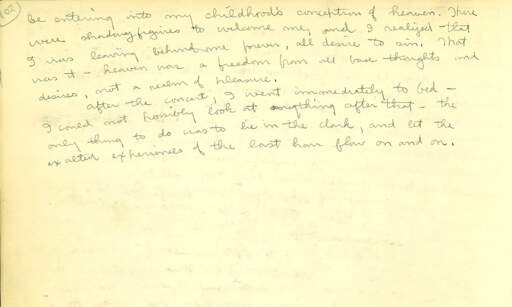 102
be entering into my childhood's conception of heaven. There
were shadowy figures to welcome me, and I realized that
I was leaving behind me forever, all desire to sin. That
was it - heaven was a freedom from all base thoughts and
desires, not a realm of pleasure.
After the concert, I went immediately to bed -
I could not possibly look at anything after that - the
only thing to do was to lie in the dark, and let the
exalted experiences of the last hour flow on and on.